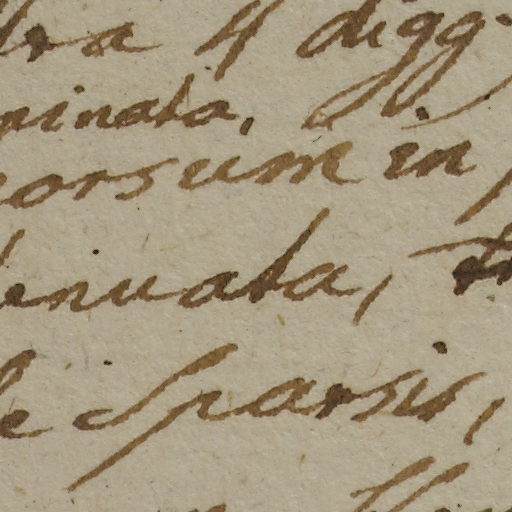 tra 4 digg
minata,
orsum in
tenuata,
le sparsis,